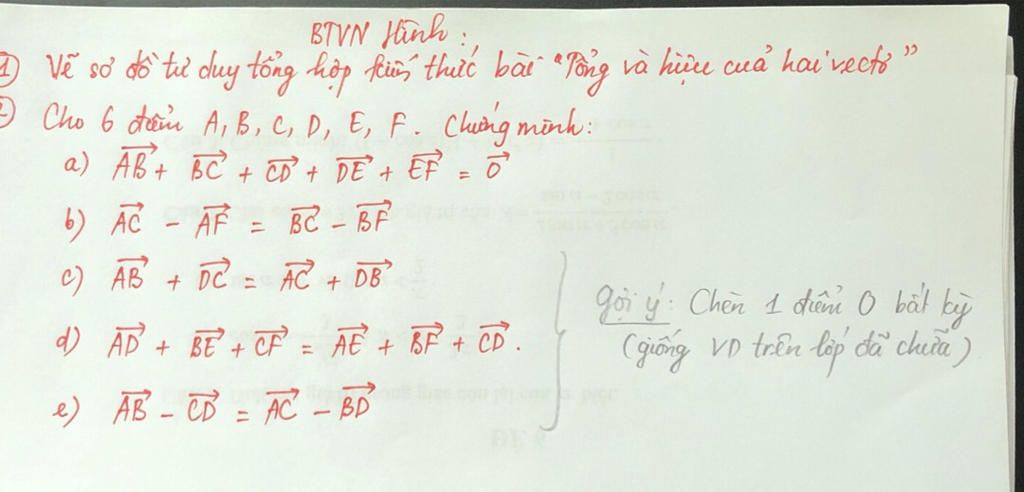 BTVN Hình:
1) Vẽ sơ đồ tư duy tổng hợp kiến thức bài "Tổng và hiệu của hai vectơ"
2) Cho 6 điểm A, B, C, D, E, F. Chứng minh:
a) $\overrightarrow{AB} + \overrightarrow{BC} + \overrightarrow{CD} + \overrightarrow{DE} + \overrightarrow{EF} = \overrightarrow{0}$
b) $\overrightarrow{AC} - \overrightarrow{AF} = \overrightarrow{BC} - \overrightarrow{BF}$
c) $\overrightarrow{AB} + \overrightarrow{DC} = \overrightarrow{AC} + \overrightarrow{DB}$
d) $\overrightarrow{AD} + \overrightarrow{BE} + \overrightarrow{CF} = \overrightarrow{AE} + \overrightarrow{BF} + \overrightarrow{CD}$.
e) $\overrightarrow{AB} - \overrightarrow{CD} = \overrightarrow{AC} - \overrightarrow{BD}$
Gợi ý: Chèn 1 điểm O bất kỳ
(giống VD trên lớp đã chữa)